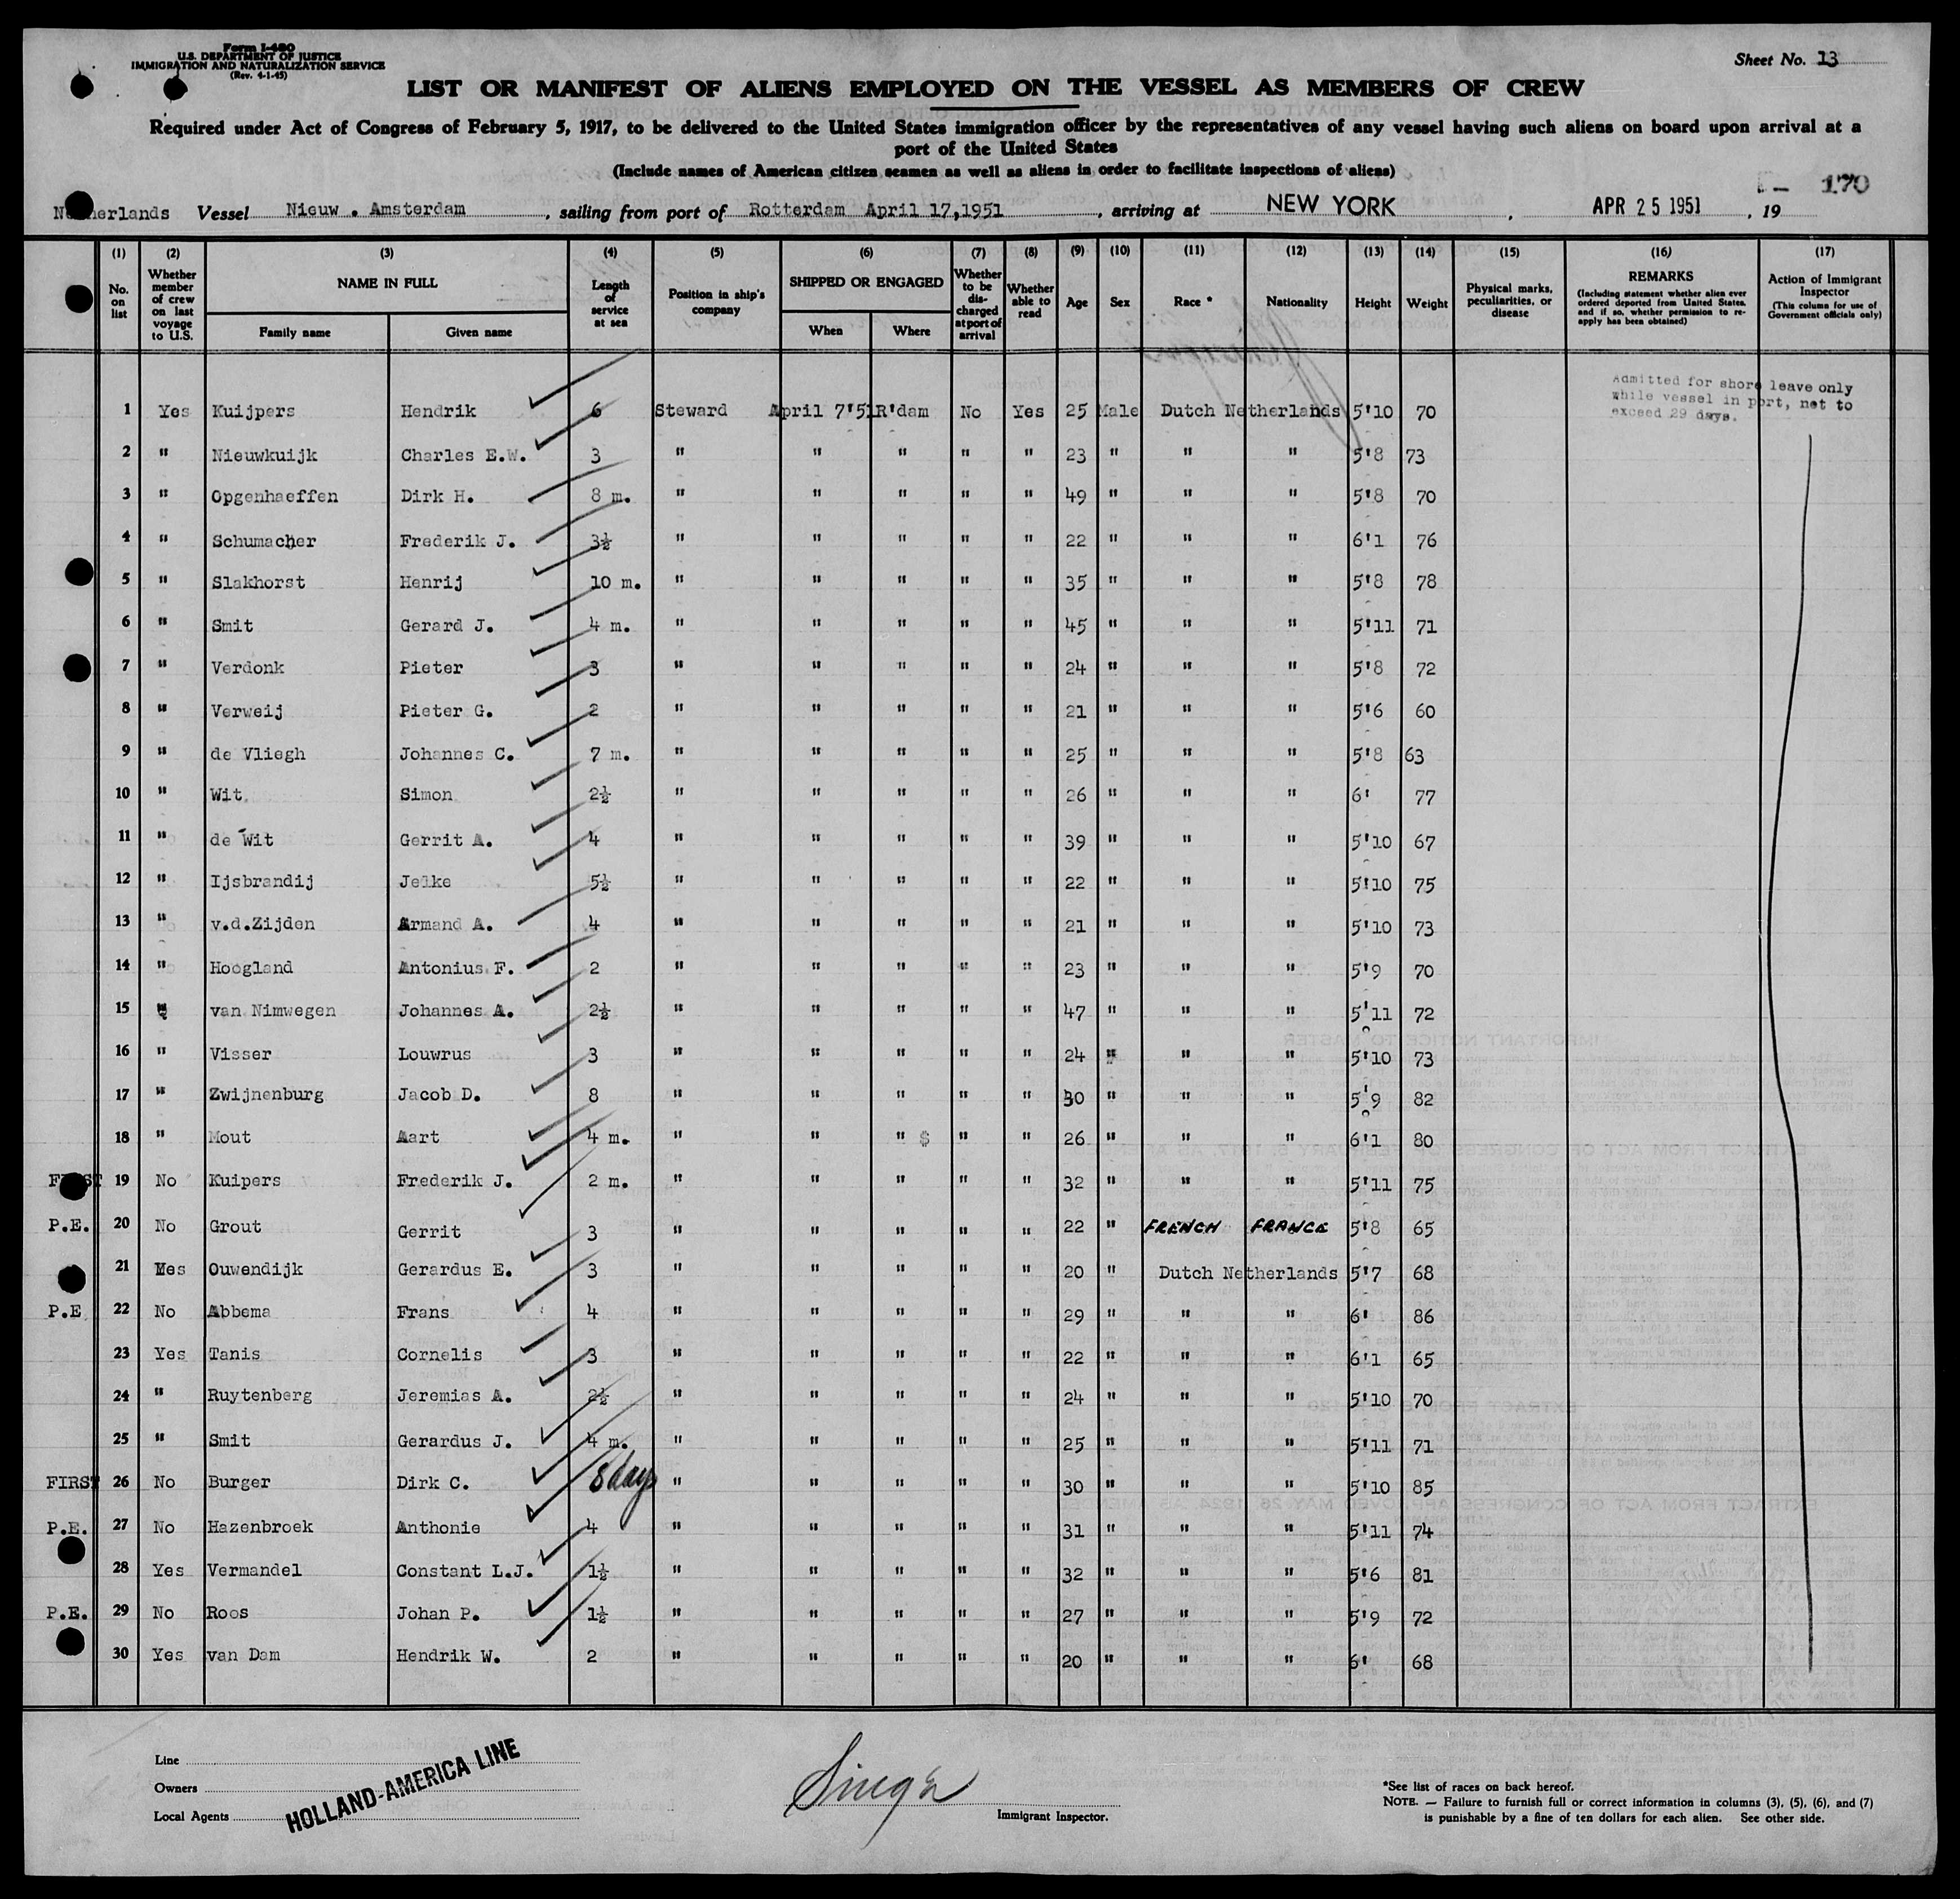 Form I-480
U.S. DEPARTMENT OF JUSTICE
IMMIGRATION AND NATURALIZATION SERVICE
(Rev. 4-1-45)
Sheet No. 13
LIST OR MANIFEST OF ALIENS EMPLOYED ON THE VESSEL AS MEMBERS OF CREW
Required under Act of Congress of February 5, 1917, to be delivered to the United States immigration officer by the representatives of any vessel having such aliens on board upon arrival at a
port of the United States
(Include names of American citizen seamen as well as aliens in order to facilitate inspections of aliens)
170
Netherlands Vessel Nieuw . Amsterdam , sailing from port of Rotterdam April 17,1951 , arriving at NEW YORK , APR 25 1951 , 19
(1) (2) (3) (4) (5) (6) (7) (8) (9) (10) (11) (12) (13) (14) (15) (16) (17)
No. on list
Whether member of crew on last voyage to U.S.
NAME IN FULL
Family name Given name
Length of service at sea
Position in ship's company
SHIPPED OR ENGAGED
When Where
Whether to be discharged at port of arrival
Whether able to read
Age Sex Race * Nationality Height Weight
Physical marks, peculiarities, or disease
REMARKS
(Including statement whether alien ever ordered deported from United States, and if so, whether permission to re-apply has been obtained)
Action of Immigrant Inspector
(This column for use of Government officials only)
Admitted for shore leave only
while vessel in port, not to
exceed 29 days.
1 Yes Kuijpers Hendrik 6 Steward April 7'51 R'dam No Yes 25 Male Dutch Netherlands 5'10 70
2 " Nieuwkuijk Charles E.W. 3 " " " " " 23 " " " 5'8 73
3 " Opgenhaeffen Dirk H. 8 m. " " " " " 49 " " " 5'8 70
4 " Schumacher Frederik J. 3½ " " " " " 22 " " " 6'1 76
5 " Slakhorst Henrij 10 m. " " " " " 35 " " " 5'8 78
6 " Smit Gerard J. 4 m. " " " " " 45 " " " 5'11 71
7 " Verdonk Pieter 3 " " " " " 24 " " " 5'8 72
8 " Verweij Pieter G. 2 " " " " " 21 " " " 5'6 60
9 " de Vliegh Johannes C. 7 m. " " " " " 25 " " " 5'8 63
10 " Wit Simon 2½ " " " " " 26 " " " 6' 77
11 " de Wit Gerrit A. 4 " " " " " 39 " " " 5'10 67
12 " Ijsbrandij Jelke 5½ " " " " " 22 " " " 5'10 75
13 " v.d.Zijden Armand A. 4 " " " " " 21 " " " 5'10 73
14 " Hoogland Antonius F. 2 " " " " " 23 " " " 5'9 70
15 " van Nimwegen Johannes A. 2½ " " " " " 47 " " " 5'11 72
16 " Visser Louwrus 3 " " " " " 24 " " " 5'10 73
17 " Zwijnenburg Jacob D. 8 " " " " " 30 " " " 5'9 82
18 " Mout Aart 4 m. " " " $ " " 26 " " " 6'1 80
FIRST 19 No Kuipers Frederik J. 2 m. " " " " " 32 " " " 5'11 75
P.E. 20 No Grout Gerrit 3 " " " " " 22 " FRENCH FRANCE 5'8 65
21 Yes Ouwendijk Gerardus E. 3 " " " " " 20 " Dutch Netherlands 5'7 68
P.E 22 No Abbema Frans 4 " " " " " 29 " " " 6' 86
23 Yes Tanis Cornelis 3 " " " " " 22 " " " 6'1 65
24 " Ruytenberg Jeremias A. 2½ " " " " " 24 " " " 5'10 70
25 " Smit Gerardus J. 4 m. " " " " " 25 " " " 5'11 71
FIRST 26 No Burger Dirk C. 8 days " " " " " 30 " " " 5'10 85
P.E. 27 No Hazenbroek Anthonie 4 " " " " " 31 " " " 5'11 74
28 Yes Vermandel Constant L.J. 1½ " " " " " 32 " " " 5'6 81
P.E. 29 No Roos Johan P. 1½ " " " " " 27 " " " 5'9 72
30 Yes van Dam Hendrik W. 2 " " " " " 20 " " " 6' 68
Line
Owners
Local Agents
HOLLAND-AMERICA LINE
Immigrant Inspector.
*See list of races on back hereof.
NOTE. — Failure to furnish full or correct information in columns (3), (5), (6), and (7)
is punishable by a fine of ten dollars for each alien. See other side.